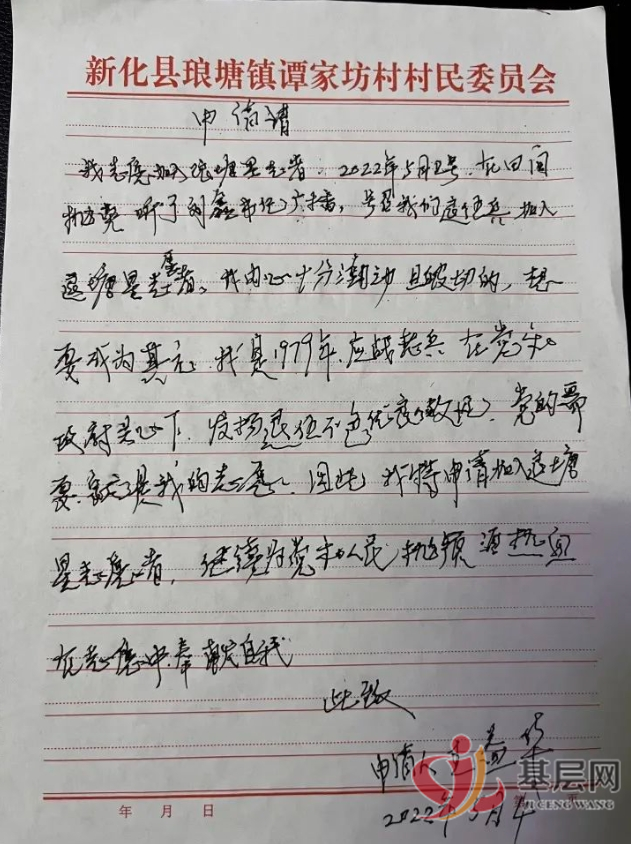 新化县琅塘镇谭家坊村村民委员会
申请
我志愿加入琅塘星志者。2022年5月 号,在田间
听了 书记广播,号召我们退伍兵加入
琅塘星志愿者。我内心十分激动且迫切的,想
要成为其元。我是1979年应战老兵在党和
政府关心下,发扬退伍不
党的需
要 是我的志愿。因此我特申请加入琅塘
星志愿者,继续为党和人民抛头颅洒热血
在志愿中奉献自我
此致
申请人 王益华
2022年5月
年 月 日
基层网
JI CENG WANG